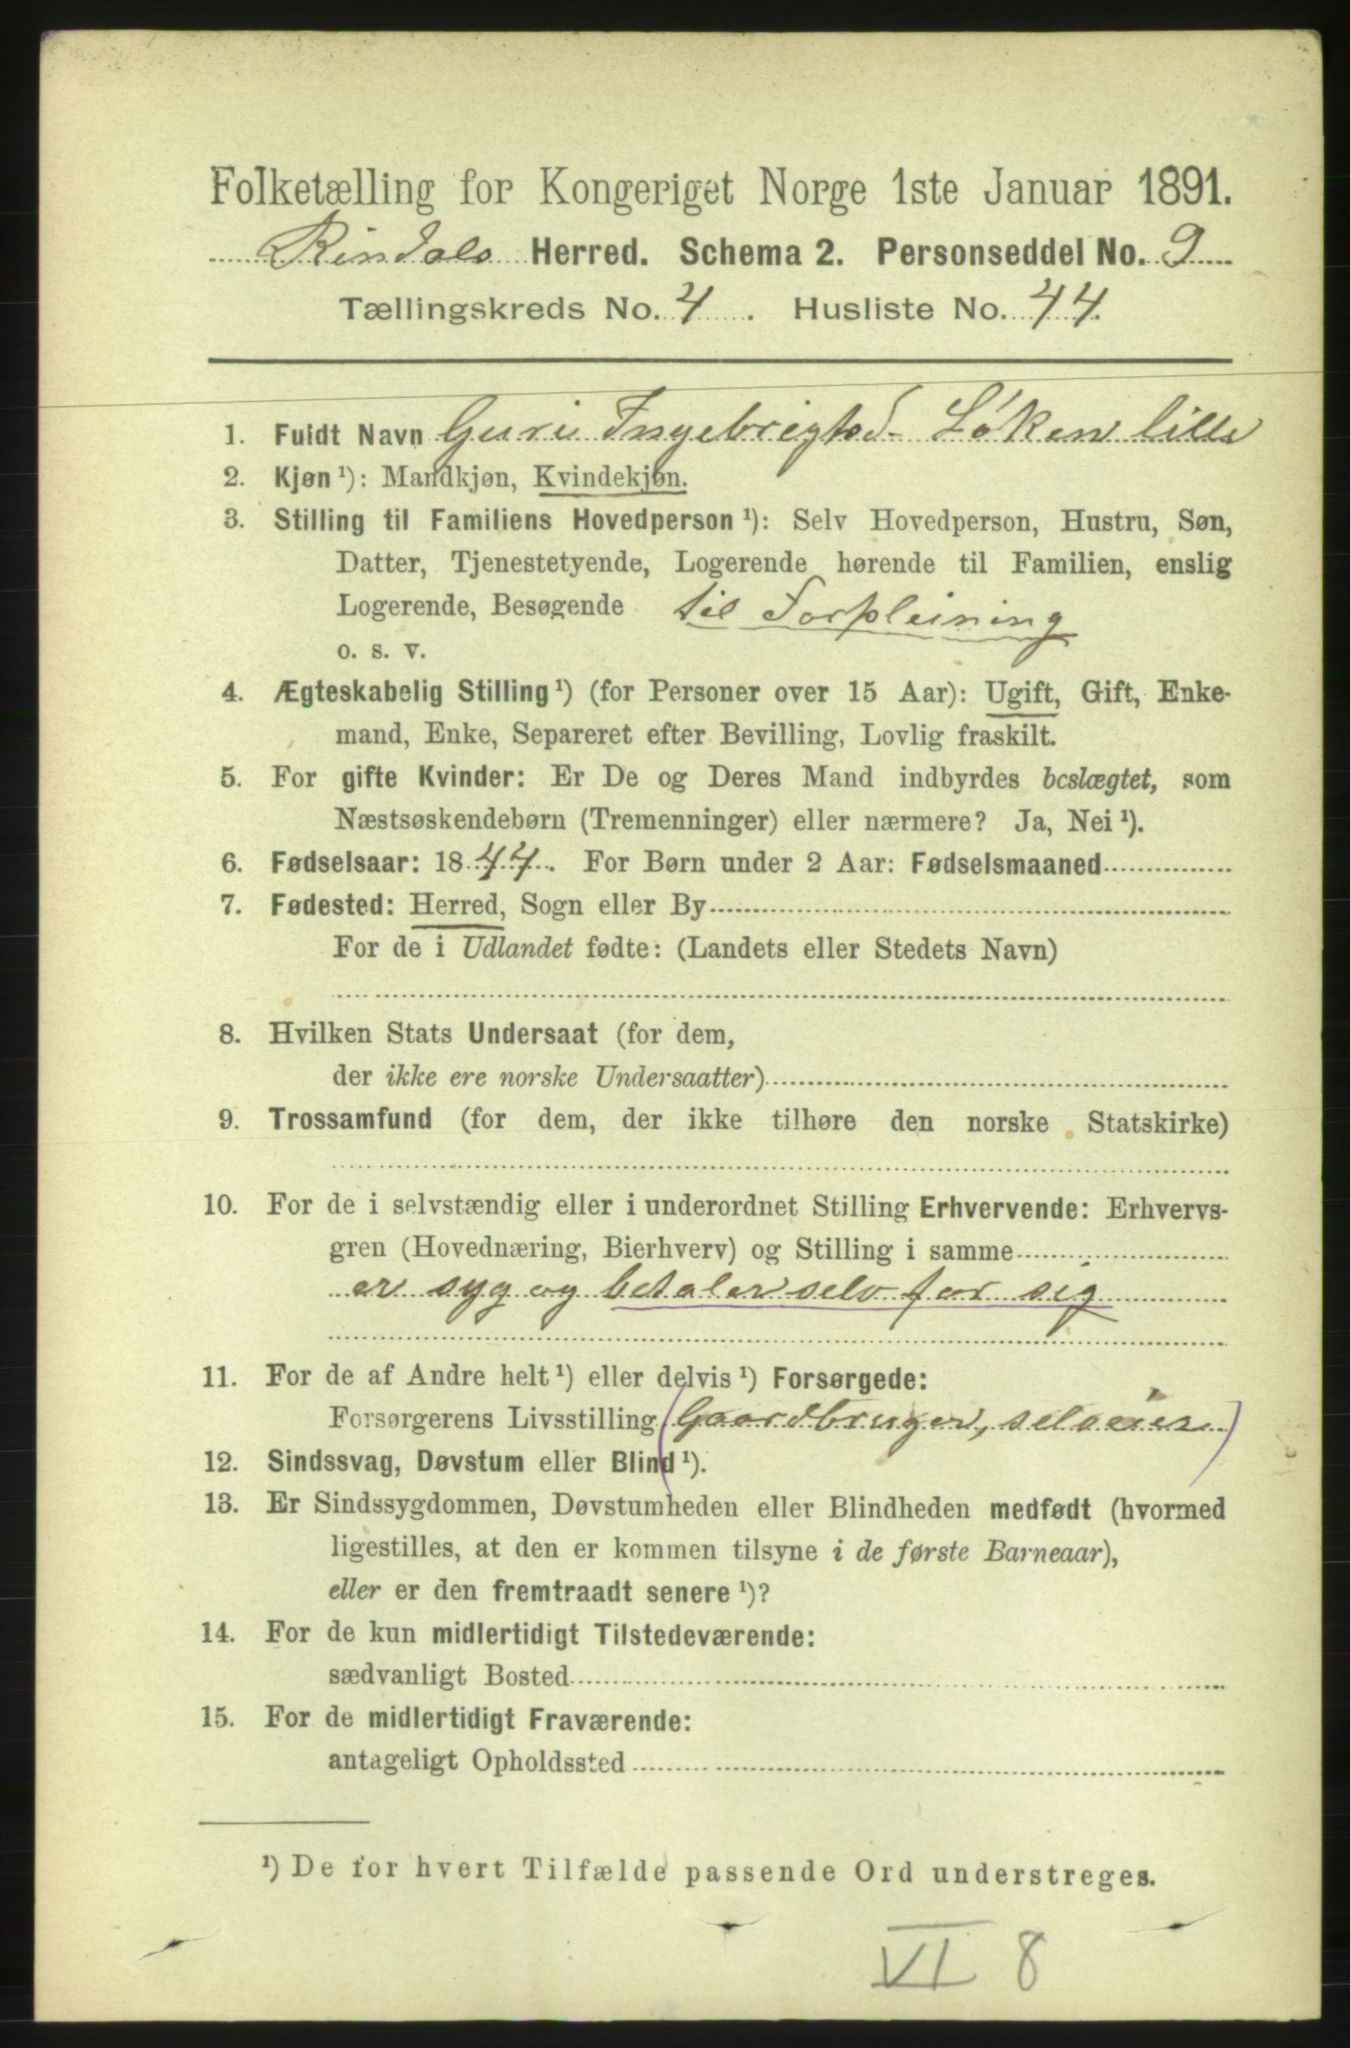 Folketælling for Kongeriget Norge 1ste Januar 1891.
Rindals Herred. Schema 2. Personseddel No. 9
Tællingskreds No. 4. Husliste No. 44.
1. Fuldt Navn Guri Ingebrigtsd. Løken lille
2. Kjøn ¹): Mandkjøn, Kvindekjøn.
3. Stilling til Familiens Hovedperson ¹): Selv Hovedperson, Hustru, Søn,
Datter, Tjenestetyende, Logerende hørende til Familien, enslig
Logerende, Besøgende til Forpleining
o. s. v.
4. Ægteskabelig Stilling ¹) (for Personer over 15 Aar): Ugift, Gift, Enke-
mand, Enke, Separeret efter Bevilling, Lovlig fraskilt.
5. For gifte Kvinder: Er De og Deres Mand indbyrdes beslægtet, som
Næstsøskendebørn (Tremenninger) eller nærmere? Ja, Nei ¹).
6. Fødselsaar: 1844. For Børn under 2 Aar: Fødselsmaaned
7. Fødested: Herred, Sogn eller By
For de i Udlandet fødte: (Landets eller Stedets Navn)
8. Hvilken Stats Undersaat (for dem,
der ikke ere norske Undersaatter)
9. Trossamfund (for dem, der ikke tilhøre den norske Statskirke)
10. For de i selvstændig eller i underordnet Stilling Erhvervende: Erhvervs-
gren (Hovednæring, Bierhverv) og Stilling i samme
er syg og betaler selv for sig
11. For de af Andre helt ¹) eller delvis ¹) Forsørgede:
Forsørgerens Livsstilling (Gaardbruger, selveier)
12. Sindssvag, Døvstum eller Blind ¹).
13. Er Sindssygdommen, Døvstumheden eller Blindheden medfødt (hvormed
ligestilles, at den er kommen tilsyne i de første Barneaar),
eller er den fremtraadt senere ¹)?
14. For de kun midlertidigt Tilstedeværende:
sædvanligt Bosted
15. For de midlertidigt Fraværende:
antageligt Opholdssted
¹) De for hvert Tilfælde passende Ord understreges.
VI 8